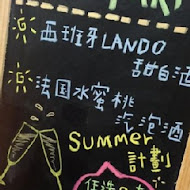 西班牙LANDO
甜白酒
法国水蜜桃
汽泡酒
Summer
計劃